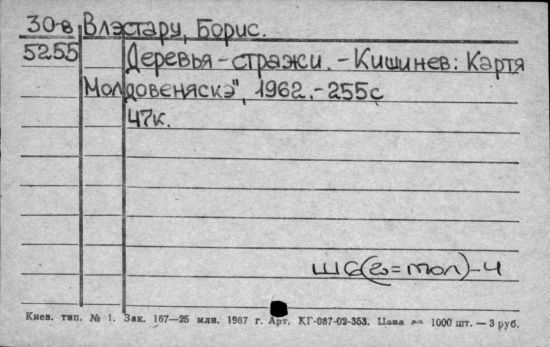 30-в Влэстару, Борис.
5255 Деревья-стражи. - Кишинев: Картя
Молдовеняскэ", 1962. - 255с
47к.
Ш6(2=мол)-4
Киев. тип. № 1. Зак. 167—25 млн. 1987 г. Арт. КГ-087-02-353. Цена за 1000 шт. — 3 руб.